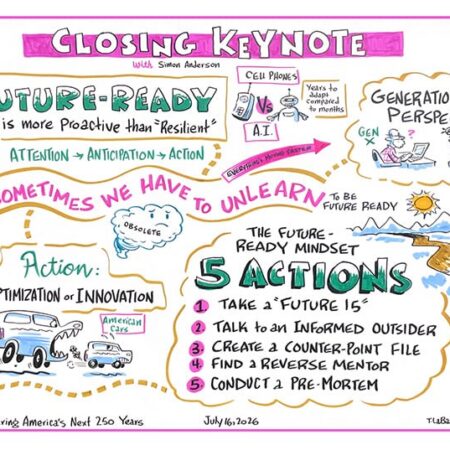 CLOSING KEYNOTE
with Simon Anderson
UTURE-READY
is more Proactive than "Resilient"
ATTENTION → ANTICIPATION → ACTION
CELL PHONES
Vs
A.I.
Years to
adapt
compared
to months
EVERYTHING'S MOVING FASTER
GENERATIO
PERSPE
GEN
X
SOMETIMES WE HAVE TO UNLEARN
TO BE
FUTURE READY
OBSOLETE
Action:
TIMIZATION or INNOVATION
American
Cars
THE FUTURE-
READY MINDSET
5 ACTIONS
1 TAKE A "FUTURE 15"
2 TALK to an INFORMED OUTSIDER
3 CREATE A COUNTER-POINT FILE
4 FIND A REVERSE MENTOR
5 CONDUCT A PRE-MORTEM
ring America's Next 250 Years
July 16, 2026
TLaBa